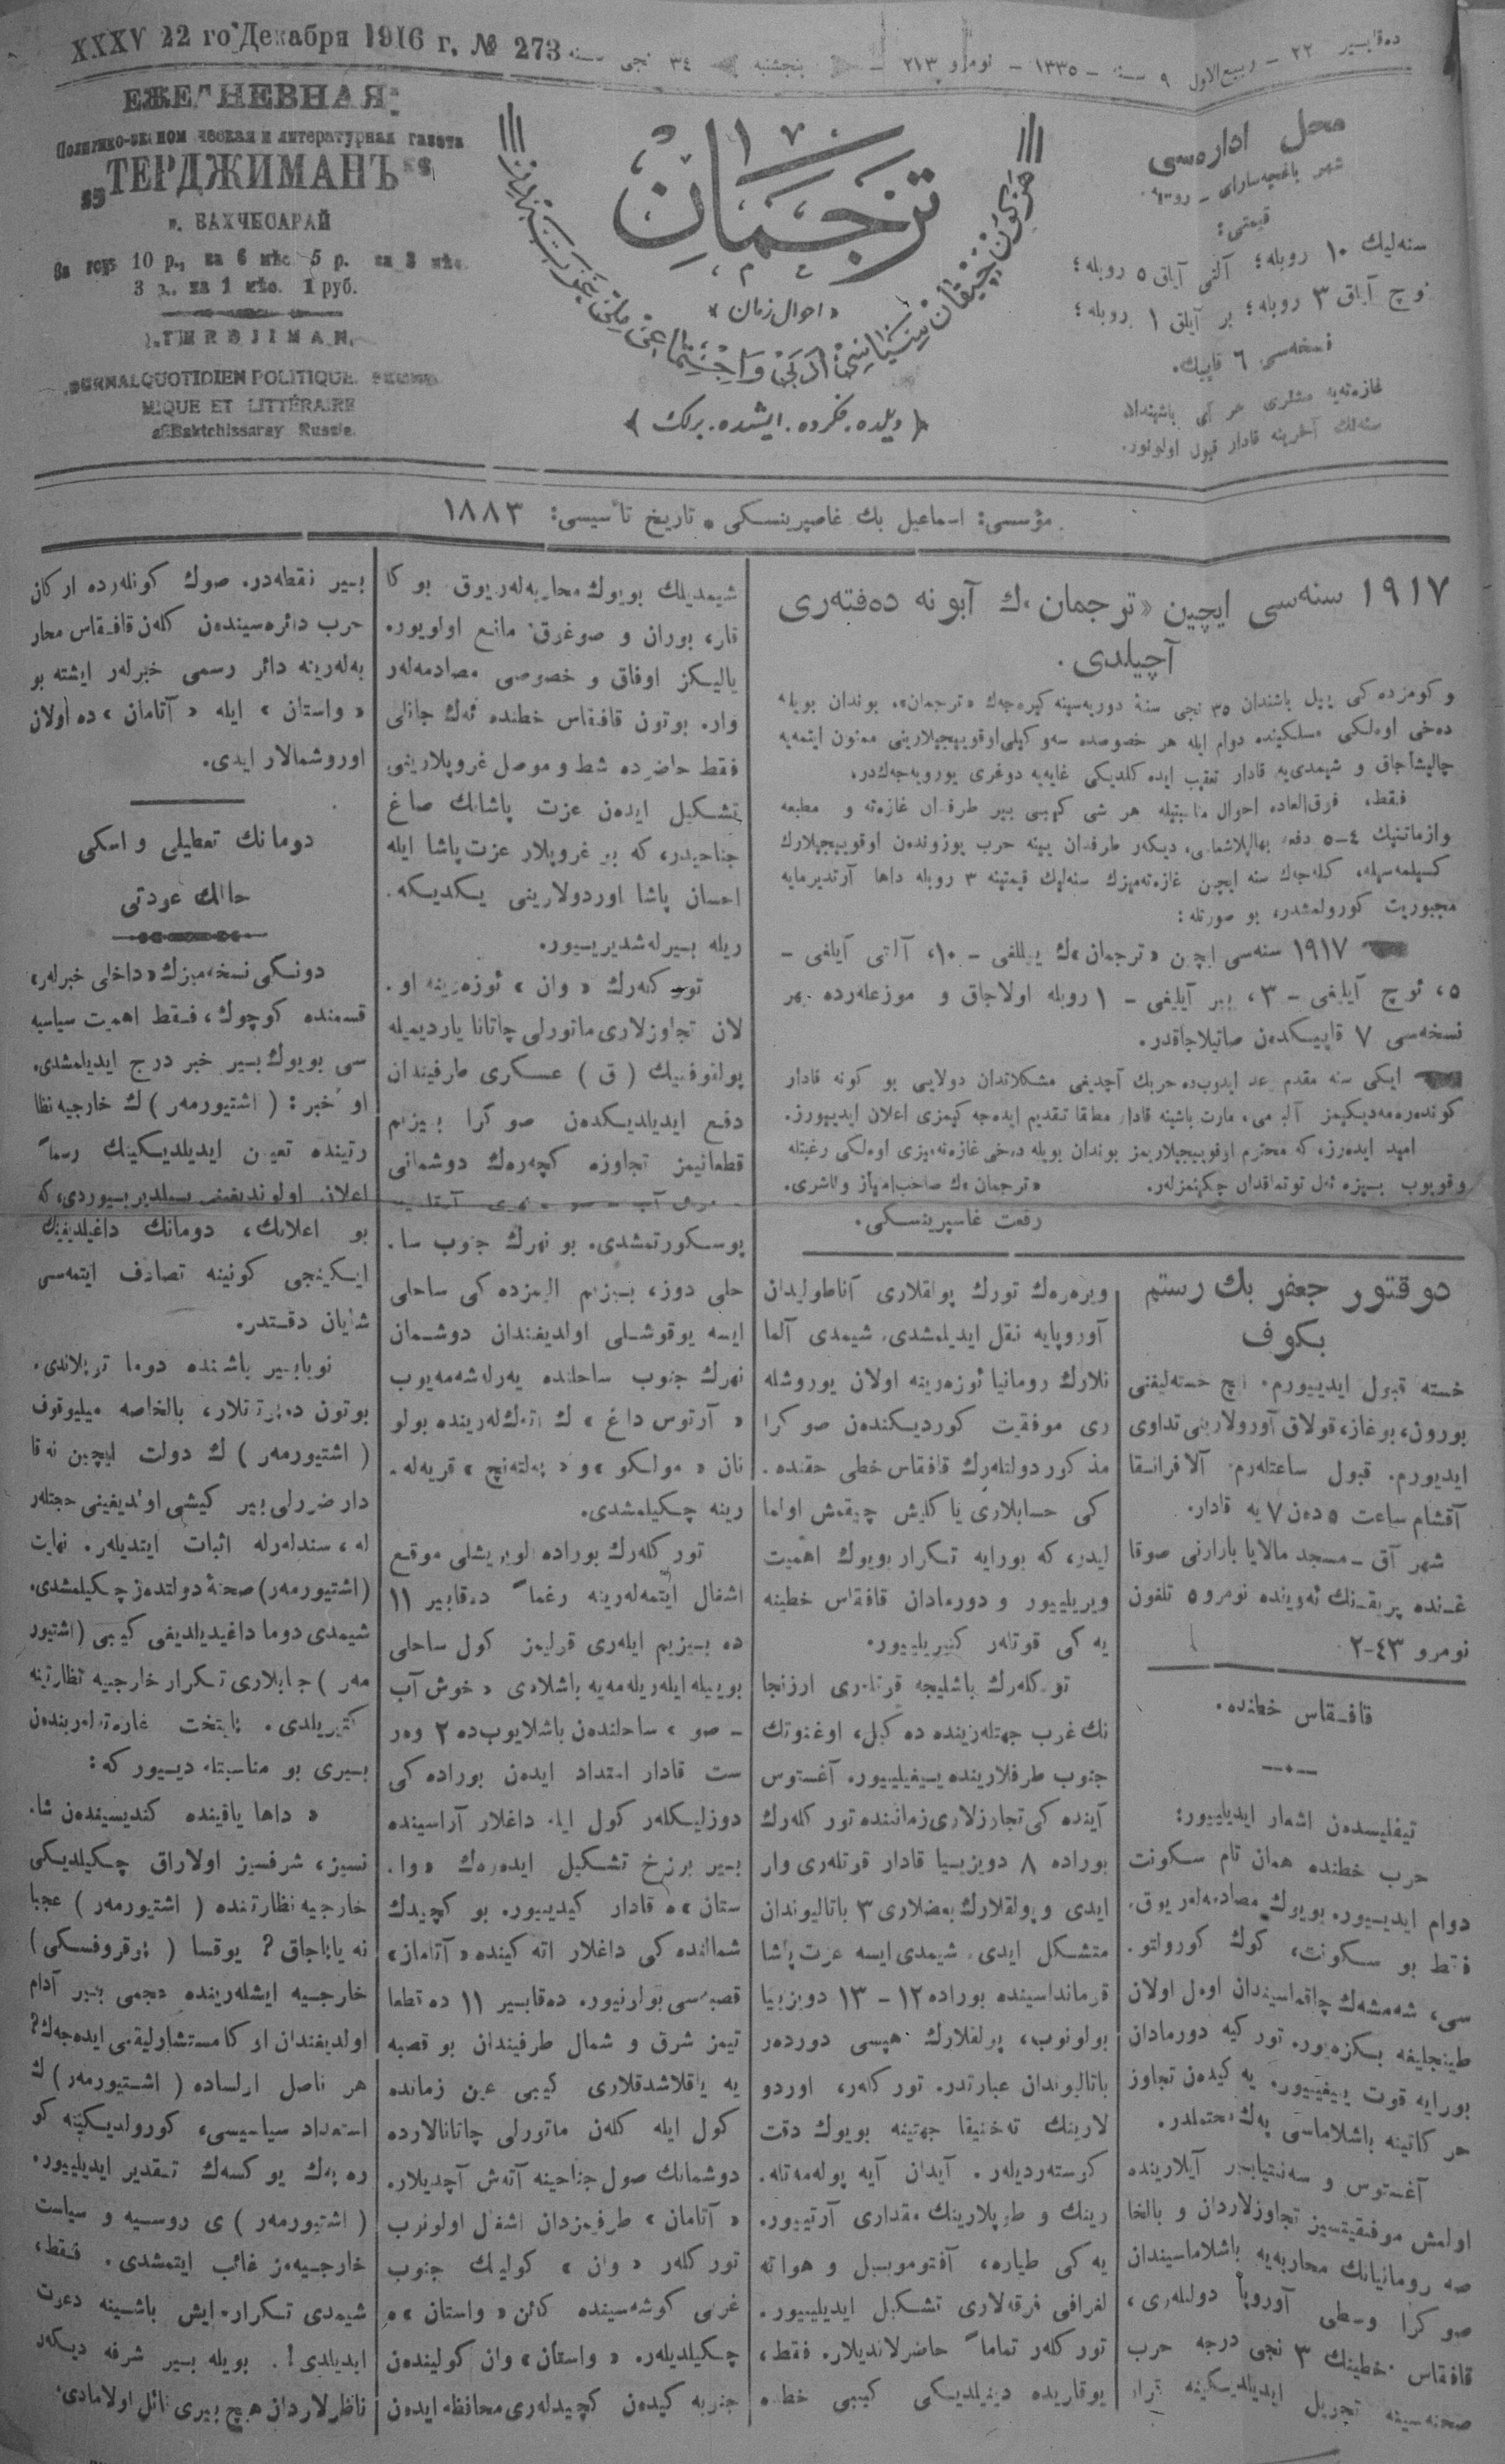 XXXV 22 го Декабря 1916 г. № 273
سنه ٣٤ نجی
پنجشنبه
نومرو ٢١٣ – ١٣٣٥ سنه ٩ ربیع‌الاول – ٢٢ ده‌قابیر
ЕЖЕДНЕВНАЯ
Политико-эконом ческая и литературная газета
„ТЕРДЖИМАНЪ“
г. БАХЧЕСАРАЙ
За годъ 10 р., за 6 мѣс 5 р. за 3 мѣс.
3 р. за 1 мѣс. 1 руб.
TERDJIMAN
JOURNAL QUOTIDIEN POLITIQUE
MIQUE ET LITTÉRAIRE
à Baktchissaray Russie.
ترجمان
«احوال زمان»
﴿ دیلده، فكرده، ایشده، برلك ﴾
محل اداره‌سی
شهر باغچه‌سارای – روسیه
قیمتی:
سنه‌لیك ١٠ روبله؛ آلتی آیلق ٥ روبله؛
اوچ آیلق ٣ روبله؛ بر آیلق ١ روبله؛
نسخه‌سی ٦ قاپیك.
غازه‌ته‌یه مشتری هر آی باشیندان
سنه‌نك آخرینه قادار قبول اولونور.
مؤسسی: اسماعیل بك غاصپرینسكی • تاریخ تأسیسی: ١٨٨٣
١٩١٧ سنه‌سی ایچین «ترجمان»ك آبونه ده‌فته‌ری
آچیلدی.
كومزده‌كی ییل باشندان ٣٥ نجی سنهٔ دوریه‌سینه گیره‌جه‌ك «ترجمان»، بوندان بویله
ده‌خی اوه‌لكی مسلكینده دوام ایله هر خصوصده سه‌وگیلی اوقوییجیلارینی ممنون ایتمه‌یه
چالیشاجاق و شیمدی‌یه قادار تعقیب ایده گلدیكی غایه‌یه دوغری یورویه‌جه‌كدر.
فقط، فوق‌العاده احوال مناسبتیله هر شی كیبی بیر طرفدان غازه‌ته و مطبعه
لوازماتنیك ٤–٥ دفعه بهالیلاشماسی، دیگر طرفدان یینه حرب یوزوندن اوقوییجیلارك
كسیلمه‌سیله، گله‌جه‌ك سنه ایچین غازه‌ته‌میزك سنه‌لیك قیمتینه ٣ روبله داها آرتدیرمایه
مجبوریت كورولمشدر، بو صورتله:
١٩١٧ سنه‌سی ایچین «ترجمان»ك ییللغی – ١٠، آلتی آیلغی –
٥، ئوچ آیلیغی – ٣، بیر آیلیغی – ١ روبله اولاجاق و موزعلرده بهر
نسخه‌سی ٧ قاپیكدن صاتیلاجاقدر.
ایكی سنه مقدم وعد ایدوب‌ده حربك آچدیغی مشكلاتدان دولایی بو كونه قادار
كوندره‌مه‌دیكیمز آلبومی، مارت باشینه قادار مطلقا تقدیم ایده‌جه كیمزی اعلان ایدییورز.
امید ایده‌رز، كه محترم اوقوییجیلاریمز بوندان بویله ده‌خی غازه‌ته‌میزی اوه‌لكی رغبتله
اوقویوب بیزه ئه‌ل توتماقدان چكینمزلر.
«ترجمان»ك صاحب امتیاز و ناشری.
رفعت غاسپرینسكی.
دوقتور جعفر بك رستم
بكوف
خسته قبول ایدییورم. ایچ خسته‌لیغنی
بورون، بوغاز، قولاق آورولارینی تداوی
ایدییورم. قبول ساعتله‌رم: آلافرانسقا
آقشام ساعت ٥ ده‌ن ٧ یه قادار.
شهر آق – مسجد مالایا بازارنی صوقا
غنده پریقنك ئه‌وینده نومرو ٥ تلفون
نومرو ٤٣–٢
قافقاس خطنده.
تیفلیسدن اشعار ایدیلییور:
حرب خطنده همان تام سكونت
دوام ایدییور. بویوك مصادمه‌لر یوق.
فقط بو سكونت، كوك كورولتو.
سی، شه‌مشه‌ك چاقماسیندان اوه‌ل اولان
طینجلیغه بكزه‌یور. تورکیه دورمادان
بورایه قوت ییغییور. یه‌كیدن تجاوز
حركاتینه باشلاماسی په‌ك محتملدر.
آغستوس و سه‌نتیابر آیلارینده
اولمش موفقیتسیز تجاوزلاردان و بالخا
صه رومانیانك محاربه‌یه باشلاماسیندان
صوكرا وسطی آوروپا دولتله‌ری،
قافقاس خطینك ٣ نجی درجه حرب
صحنه‌سینه تحویل ایدیلدیكینه قرار
ویره‌ره‌ك تورك پولقلاری آناطولیدان
آوروپایه نقل ایدیلمشدی. شیمدی آلما
نلارك رومانیا ئوزه‌رینه اولان یوروشله
ری موفقیت كوردیكندن صوكرا
مذكور دولتله‌رك قافقاس خطی حقنده.
كی حسابلاری یاكلیش چیقمش اولما
لیدر، كه بورایه تكرار بویوك اهمیت
ویریلییور و دورمادان قافقاس خطینه
یه‌كی قوتلر كتیریلییور.
توركله‌رك باشلیجه قوتله‌ری ارزنجا
نك غرب جهتله‌رینده ده‌كیل، اوغنوتك
جنوب طرفلارینده ییغیلییور. آغستوس
آینده‌كی تجاوزلاری زماننده توركله‌رك
بوراده ٨ دویزییا قادار قوتله‌ری وار
ایدی و پولقلارك بعضلاری ٣ باتالیوندان
متشكل ایدی. شیمدی ایسه عزت پاشا
قومانداسینده بوراده ١٢ – ١٣ دویزییا
بولونوب، پولقلارك هپسی دوردر
باتالیوندان عبارتدر. توركلر، اوردو
لارینك ته‌خنیقا جهتینه بویوك دقت
كوسته‌ردیلر. آیدان آیه پوله‌مه‌تله.
رینك و طوپلارینك مقداری آرتییور.
یه‌كی طیاره، آفتوموبیل و هوا ته
لغرافی فرقه‌لاری تشكیل ایدیلییور.
توركلر تماماً حاضرلاندیلار. فقط،
یوقاریده دینیلدیكی كیبی خطده
شیمدیلك بویوك محاربه‌لر یوق. بوكا
قار، بوران و صوغوق مانع اولویور.
یالیكز اوفاق و خصوصی مصادمه‌لر
وار. بوتون قافقاس خطنده ئه‌ك جانلی
فقط حاضرده شط و موصل غروپلارینی
تشكیل ایده‌ن عزت پاشانك صاغ
جناحیدر، كه بو غروپلار عزت پاشا ایله
احسان پاشا اوردولارینی یكدیكه.
ریله بیرله‌شدیرییور.
توركله‌رك «وان» ئوزه‌رینه او.
لان تجاوزلاری ماتورلی چاتانا یاردیمیله
پولقوفنیك (ق) عسكری طرفیندان
دفع ایدیلدیكدن صوكرا بیزیم
قطعاتیمز تجاوزه كچه‌ره‌ك دوشمانی
پوسكورتمشدی. بو نهرك جنوب سا.
حلی دوز، بیزیم الیمزده‌كی ساحلی
ایسه یوقوشلی اولدیغندان دوشمان
نهرك جنوب ساحلنده یه‌رله‌شه‌مه‌یوب
«آرتوس داغ»ك اته‌ك‌له‌رینده بولو
نان «مولكو» و «پلته‌نج» قریه‌له.
رینه چكیلمشدی.
توركله‌رك بوراده الویریشلی موقع
اشغال ایتمه‌له‌رینه رغماً ده‌قابیر ١١
ده بیزیم ایله‌ری قوللیمز كول ساحلی
بوییله ایله‌ریله‌مه‌یه باشلادی. «خوش آب
– صو» ساحلندن باشلایوب‌ده ٢ ور
ست قادار امتداد ایده‌ن بوراده‌كی
دوزلیكلر كول ایله داغلار آراسینده
بیر برزخ تشكیل ایده‌ره‌ك «وا.
ستان»ه قادار كیدییور. بو كچیدك
شمالنده‌كی داغلار اته‌كینده «آتامان»
قصبه‌سی بولونیور. ده‌قابیر ١١ ده قطعا
تیمز شرق و شمال طرفیندان بو قصبه
یه یاقلاشدقلاری كیبی عین زمانده
كول ایله كله‌ن ماتورلی چاتانالارده
دوشمانك صول جناحینه آتش آچدیلار.
«آتامان» طرفیمزدان اشغال اولونوب
توركلر «وان» كولینك جنوب
غربی كوشه‌سینده كائن «واستان»ه
چكیلدیلر. «واستان» وان كولیندن
جنوبه كیده‌ن كچیدله‌ری محافظه ایده‌ن
بیر نقطه‌در. صوك كونله‌رده اركان
حرب دائره‌سیندن كله‌ن قافقاس محار
به‌له‌رینه دائر رسمی خبرلر ایشته بو
«واستان» ایله «آتامان»ده اولان
اوروشمالار ایدی.
دومانك تعطیلی و اسكی
حالك عودتی
دونكی نسخه‌میزك «داخلی خبرلر»
قسمنده كوچوك، فقط اهمیت سیاسیه
سی بویوك بیر خبر درج ایدیلمشدی.
او خبر: (اشتیورمه‌ر)ك خارجیه نظا
رتینده تعیین ایدیلدیكینك رسماً
اعلان اولوندیغنی بیلدیرییوردی، كه
بو اعلانك، دومانك داغیلدیغینك
ایكینجی كونینه تصادف ایتمه‌سی
شایان دقتدر.
نویابیر باشنده دوما توپلاندی.
بوتون ده‌پوتاتلار، بالخاصه میلیوقوف
(اشتیورمه‌ر)ك دولت ایچین نه قا
دار ضررلی بیر كیشی اولدیغینی حجتلر
له، سندلرله اثبات ایتدیلر. نهایت
(اشتیورمه‌ر) صحنهٔ دولتدن چكیلمشدی.
شیمدی دوما داغیدیلدیغی كیبی (اشتیور
مه‌ر) جنابلاری تكرار خارجیه نظارتینه
كتیریلدی. پایتخت غازه‌ته‌له‌ریندن
بیری بو مناسبتله دییور كه:
« داها یاقینده كندیسیندن شا.
نسیز، شرفسیز اولاراق چكیلدیكی
خارجیه نظارتنده (اشتیورمه‌ر) عجبا
نه یاپاجاق؟ یوقسا (پوقروفسكی)
خارجیه ایشله‌رینده عجمی بیر آدام
اولدیغندان اوكا مستشارلیق‌می ایده‌جه‌ك؟
هر ناصل اولساده (اشتیورمه‌ر)ك
استعداد سیاسیسی، كورولدیكینه كو
ره په‌ك یوكسه‌ك تقدیر ایدیلییور.
(اشتیورمه‌ر)ی روسیه و سیاست
خارجیه‌مز غائب ایتمشدی. فقط،
شیمدی تكرار ایش باشینه دعوت
ایدیلدی!. بویله بیر شرفه دیكر
ناظرلاردان هیچ بیری نائل اولامادی.